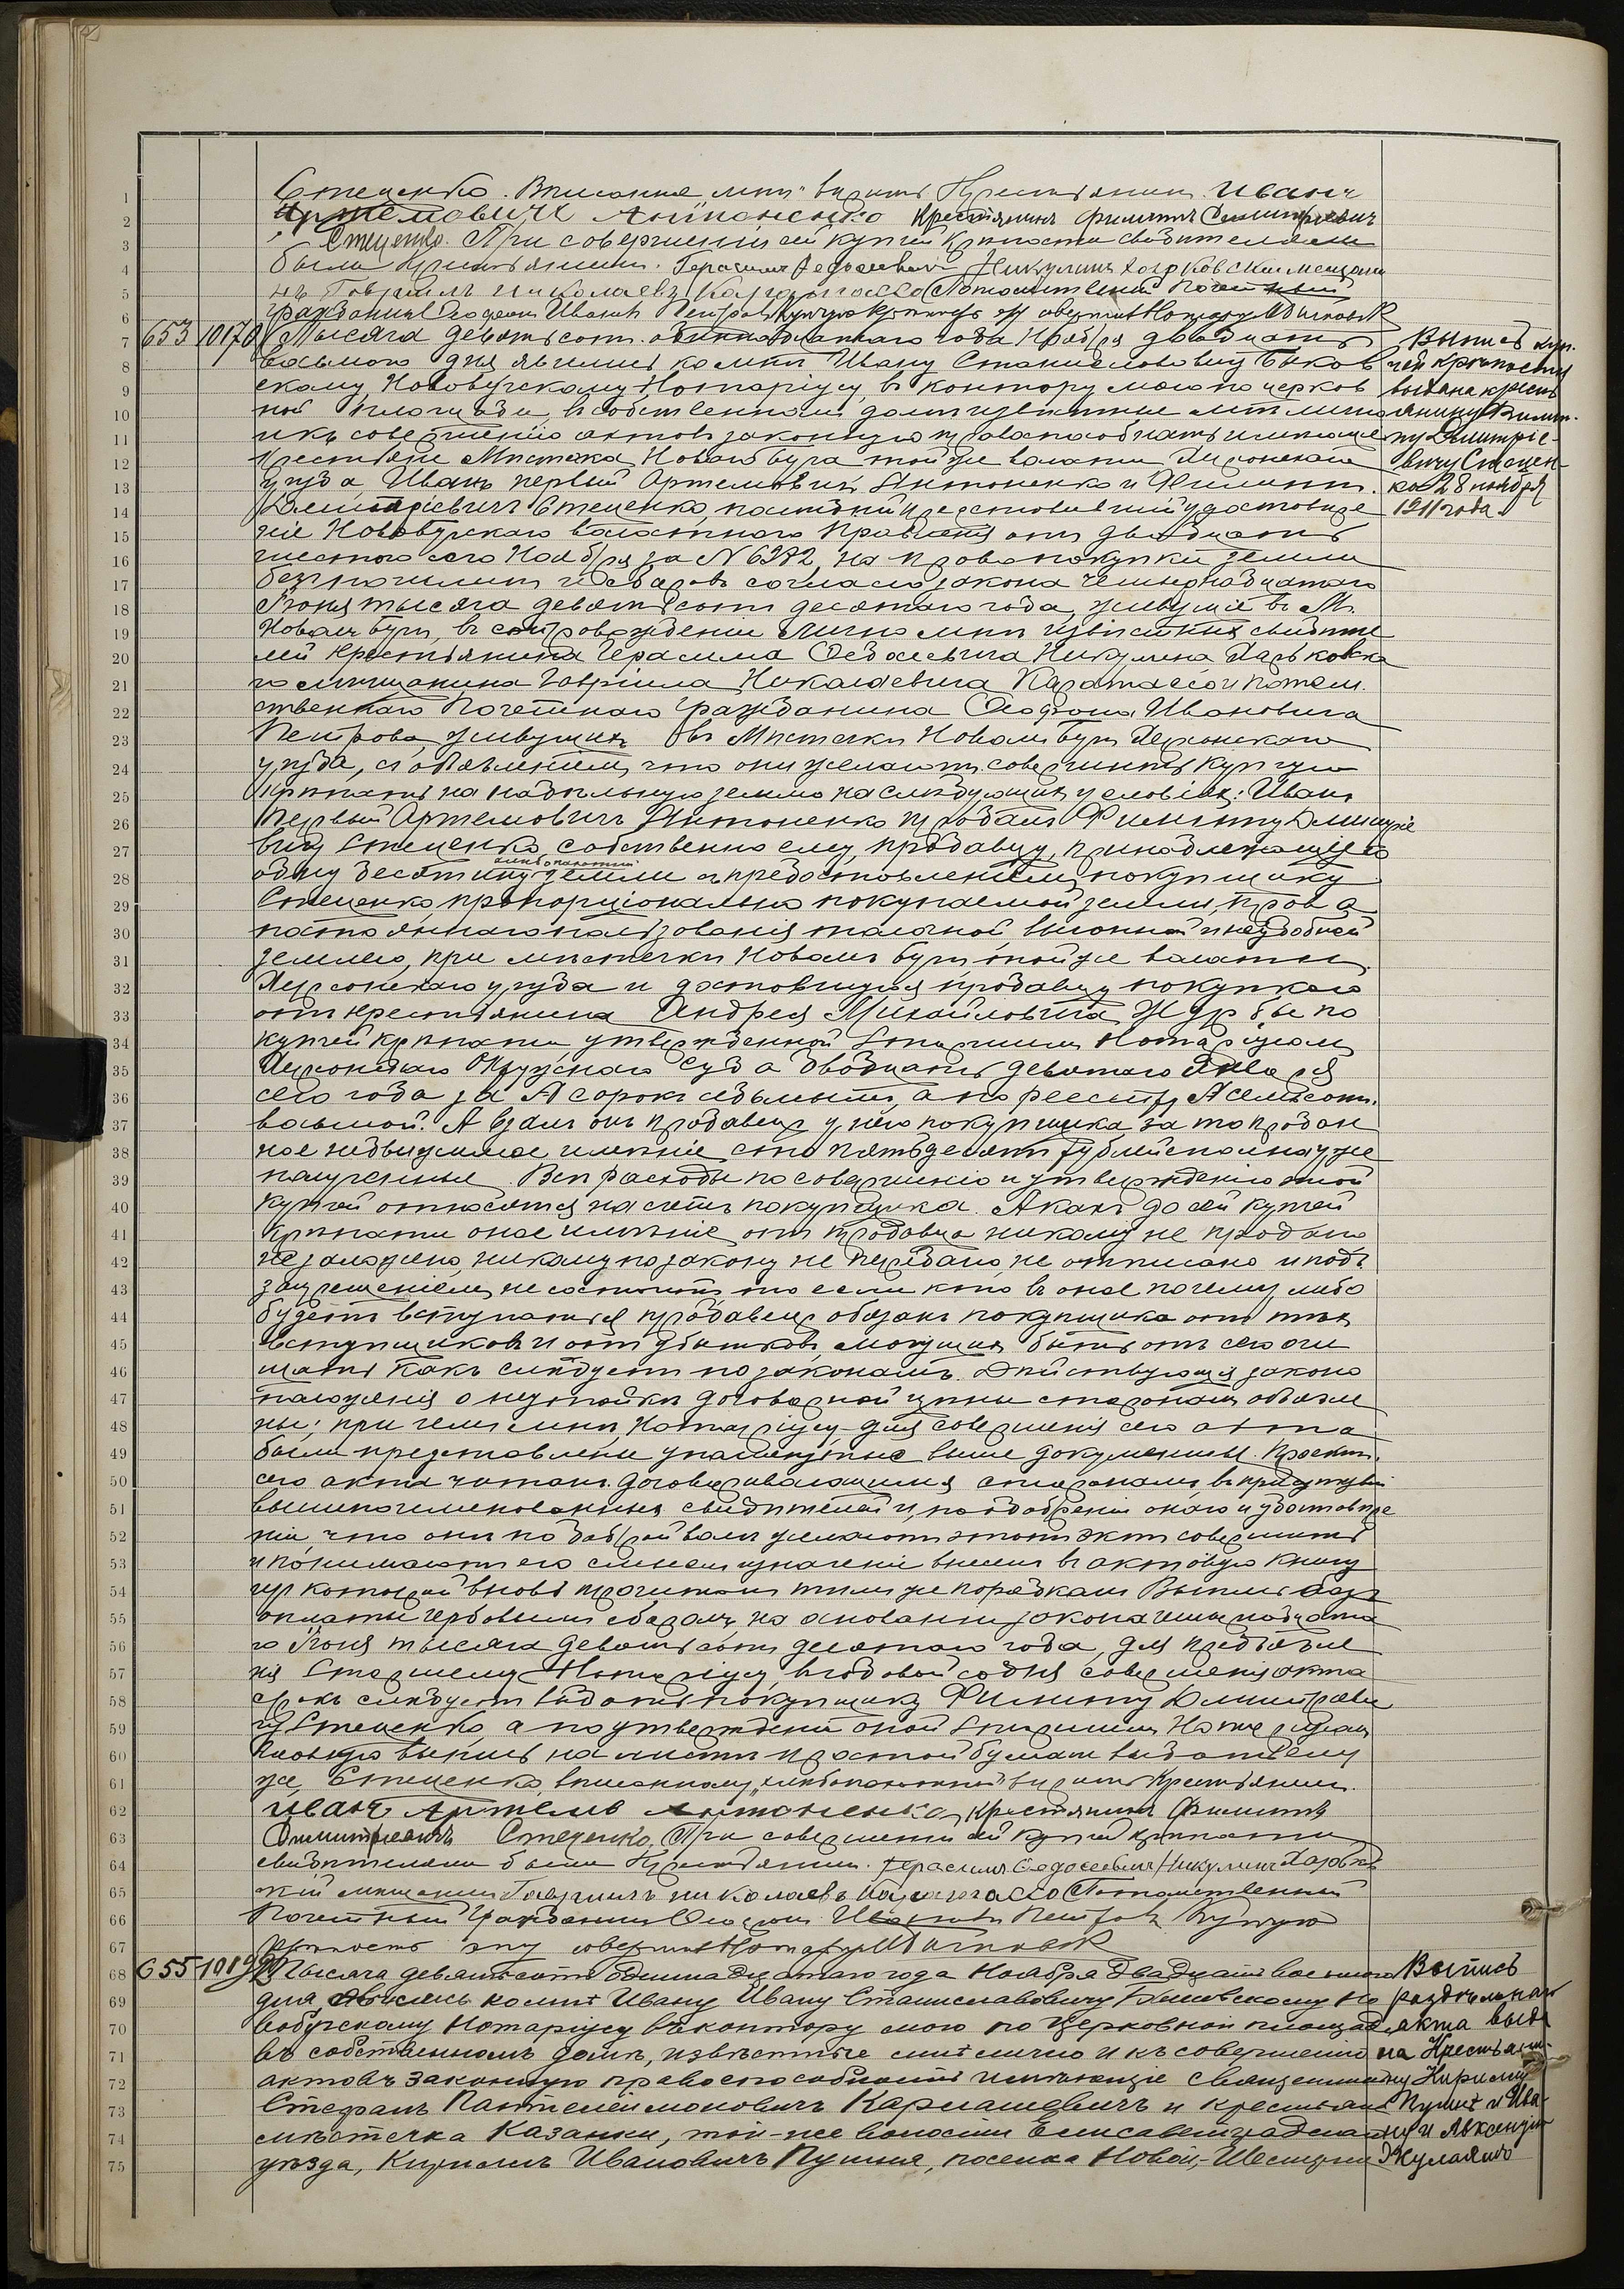 Стеценко. Вписанное мнѣ вѣрить Крестьянинъ Иванъ
Артемовичъ Антоненко Крестянинъ Филиппъ Димитріевичъ
Стеценко. При совершеніи сей купчей крѣпости свидѣтелями
были Крестьянинъ Герасимъ Федосеевичъ Никулинъ Харковскій мещани
нъ Гавріилъ Николаевъ Потомственный Почетный
Гражданинъ Иванов Петровъ Купчую Крѣпость эту совершилъ Нотаріусъ
653 10170 Тысяча девятьсотъ одиннадцатаго года Ноября двадцать
восьмого дня явились ко мнѣ Ивану Станиславовичу Быков
скому, Новобугскому Нотаріусу, въ контору мою по церков
ной площади, въ собственномъ домѣ извѣстные мнѣ лично
и къ совершенію актовъ законную правоспособность имѣющіе
крестьяне Мѣстечка Новаго Буга той же волости Херсонскаго
уѣзда, Иванъ первый Артемовичъ Антоненко и Филиппъ
Димитріевичъ Стеценко, послѣдній представившій удостовѣре
ніе Новобугскаго волостного Правленія отъ двадцать
шестого сего Ноября за N 6372, на право покупки земли
безъ пошлинъ и сборовъ согласно закона четырнадцатаго
Іюня тысяча девятьсотъ десятаго года, живущіе въ М.
Новомъ Бугѣ, въ сопровожденіи лично мнѣ извѣстныхъ свидѣте
лей крестьянина Герасима Федосеевича Никулина Харьковска
го мѣщанина Гавріила Николаевича и потом
ственнаго Почетнаго Гражданина Ивановича
Петрова, живущихъ въ Мѣстечкѣ Новомъ Бугѣ Херсонскаго
уѣзда, съ объявленіемъ, что они желаютъ совершить купчую
крѣпость на надѣльную землю на слѣдующихъ условіяхъ: Иванъ
Первый Артемовичъ Антоненко продалъ Филиппу Димитріе
вичу Стеценко, собственно ему, продавцу, принадлежащую
одну десятину земли съ предоставленіемъ покупщику
Стеценко, пропорціонально покупаемой земли, права
постояннаго пользованія толочной, выгонной и неудобной
землею, при мѣстечкѣ Новомъ Бугѣ, той же волости
Херсонскаго уѣзда и доставшуюся продавцу покупкою
отъ крестьянина Андрея Михайловича по
купчей крѣпости, утвержденной Старшимъ Нотаріусомъ
Херсонскаго Окружнаго Суда двадцать девятаго
сего года за N сорокъ седьмымъ, а по реестру N семьсотъ
восьмой. А взялъ онъ продавецъ у него покупщика за то продан
ное недвижимое имѣніе сто пятьдесятъ рублей сполна уже
полученные. Всѣ расходы по совершенію и утвержденію этой
купчей относятся на счетъ покупщика. А какъ до сей купчей
крѣпости оное имѣніе отъ продавца никому не продано
не заложено, никому по закону не передано, не отписано и подъ
запрещеніемъ не состоитъ, то если кто въ оное почему либо
будетъ вступаться продавецъ обязанъ покупщика отъ тѣхъ
вступщиковъ и отъ убытковъ, могущихъ быть отъ сего очи
щать какъ слѣдуетъ по законамъ. Дѣйствующія законо
положенія о неустойкѣ договорной цѣны сторонамъ объявле
ны; при чемъ мнѣ, Нотаріусу, для совершенія сего акта
были представлены упомянутые выше документы. Проектъ
сего акта читанъ договаривающимся сторонамъ въ присутствіи
вышепоименованныхъ свидѣтелей и, по одобреніи онаго и удостовѣре
ніи, что они по доброй волѣ желаютъ этотъ актъ совершить
и понимаютъ его смыслъ и значеніе внесенъ въ актовую книгу
изъ которой вновь прочитанъ тѣмъ же порядкомъ Выпись безъ
оплаты гербовымъ сборомъ, на основаніи закона четырнадцата
го Іюня тысяча девятьсотъ десятаго года, для предъявле
нія Старшему Нотаріусу въ годовой со дня совершенія акта
срокъ слѣдуетъ выдать покупщику Филиппу Димитріеви
чу Стеценко, а по утвержденіи оной Старшимъ Нотаріусомъ
выпись на листѣ простой бумаги выдать ему
же, Стеценко, вписанному вѣрить Крестьянинъ
Иванъ Артемов Антоненко, крестянинъ Филиппъ
Димитріевичъ Стеценко, При совершеніи сей купчей крѣпости
свидѣтелями были Крестьянинъ Герасимъ Федосеевичъ Никулинъ Харьков
скій мѣщанинъ Гавріилъ Николаевъ Потомственный
Почетный Гражданинъ Ивановъ Петровъ Купчую
крѣпость эту совершилъ Нотаріусъ
655 Тысяча девятьсотъ одиннадцатаго года Ноября двадцать восьмого
дня, явились ко мнѣ Ивану Ивану Станиславовичу Быковскому Но
вобугскому Нотаріусу въ контору мою по Церковной площади,
въ собственномъ домѣ, извѣстные мнѣ лично и къ совершенію
актовъ законную правоспособность имѣющіе Священникъ
Стефанъ Пантелеимоновичъ Кармашевичъ и крестьяне
мѣстечка Казанки, той-же волости Елисаветградскаго
уѣзда, Кириллъ Ивановичъ Пушня, поселка Новой-Шестерни
Выпись куп.
чей крѣпости
выдана кресть
янину Филип.
пу Димитріе-
вичу Стецен-
ко 28 ноября
1911 года.
Выпись
раздѣльнаго
акта выда
на Крестьяни-
ну Кириллу
Пушнѣ и Ива-
ну и Авксентію